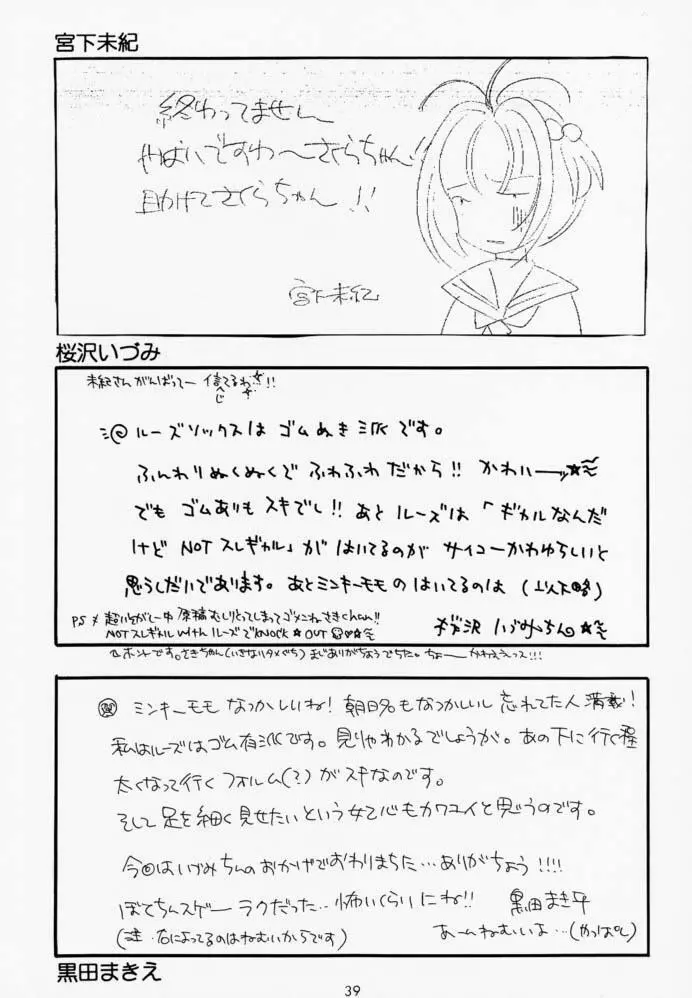 宮下未紀
終わってません
やばいですわ〜さくらちゃん!!
助けてさくらちゃん!!
宮下未紀
桜沢いづみ
未紀さんがんばってー 信じてるわ!!
ルーズソックスは ゴムぬき派です。
ふんわりぬくぬくで ふわふわだから!! かわいーッ☆
でも ゴムありも スキでし!! あと ルーズは 「ギャルなんだ
けど NOT スレギャル」が はいてるのが サイコーかわゆらしいと
思うしだいであります。 あとミンキーモモ のはいてるのは (以下略)
PS 原稿むしりとってしまってゴメンねさきchan!!
NOTスレギャル with ルーズでKNOCK☆OUT
桜沢 いづみちん☆
ホントです。さきちゃん(いきなりタメぐち) まじありがちょうでちた。ちょーーかわええっス!!!
ミンキーモモ なつかしいね! 朝日名もなつかしいし 忘れてた人 満載!
私はルーズはゴム有派です。見りゃわかるでしょうが。あの下に行く程
太くなって行く フォルム(?) がスキなのです。
そして 足を細く見せたいという女心もカワユイと思うのです。
今回はいづみちんのおかげでおわりまちた…ありがちょう!!!!
ぽてちんスゲー ラクだった…怖いくらいにね!!
黒田まき平
(注・右によってるのはねむいからです)
あーーねむいよ…(やっぱし)
黒田まきえ
39